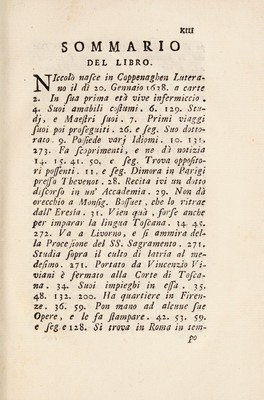 XIII
SOMMARIO
DEL LIBRO.
NIccolò nasce in Coppenaghen Lutera-
no il dì 20. Gennaro 1638. a carte
2. In sua prima età vive infermiccio.
4. Suoi amabili costumi. 6. 129. Stu-
dj, e Maestri suoi. 7. Primi viaggi
suoi poi proseguiti. 26. e seg. Suo dotto-
rato. 9. Possiede varj Idiomi. 10. 131,
273. Fa scoprimenti, e ne dà notizia
14. 15. 41. 50, e seg. Trova opposito-
ri possenti. 11. e seg. Dimora in Parigi
presso Thevenot. 28. Recita ivi un dotto
discorso in un' Accademia. 29. Non dà
orecchio a Monsig. Bossuet, che lo ritrae
dall' Eresia. 31. Vien quà, forse anche
per imparar la lingua Toscana. 34. 45.
272. Va a Livorno, e si ammira del-
la Processione del SS. Sagramento. 271.
Studia sopra il culto di latria al me-
desimo. 271. Portato da Vincenzio Vi-
viani è fermato alla Corte di Tosca-
na. 34. Suoi impieghi in essa. 35.
48. 132. 200. Ha quartiere in Firen-
ze. 36. 59. Pon mano ad alcune sue
Opere, e le fa stampare. 42. 53. 59.
e seg e 128. Si trova in Roma in tem-
po